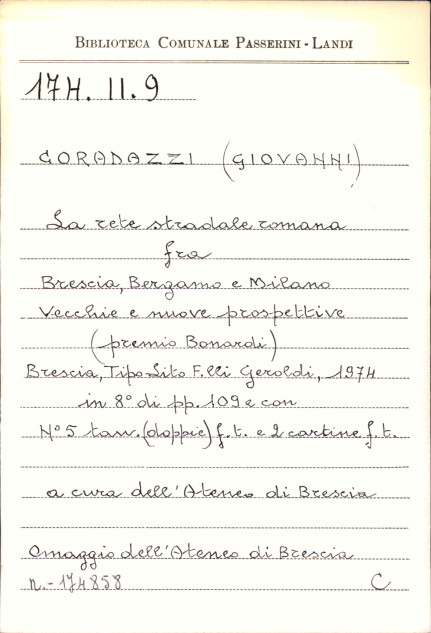 BIBLIOTECA COMUNALE PASSERINI-LANDI
174. II. 9
CORADAZZI (GIOVANNI)
La rete stradale romana
fra
Brescia, Bergamo e Milano
Vecchie e nuove prospettive
(premio Bonardi)
Brescia, Tipo-Lito F.lli Geroldi, 1974
in 8° di pp. 109 e con
N° 5 tavv. (doppie) f. t. e 2 cartine f. t.
a cura dell'Ateneo di Brescia
Omaggio dell'Ateneo di Brescia
n.- 174858 C